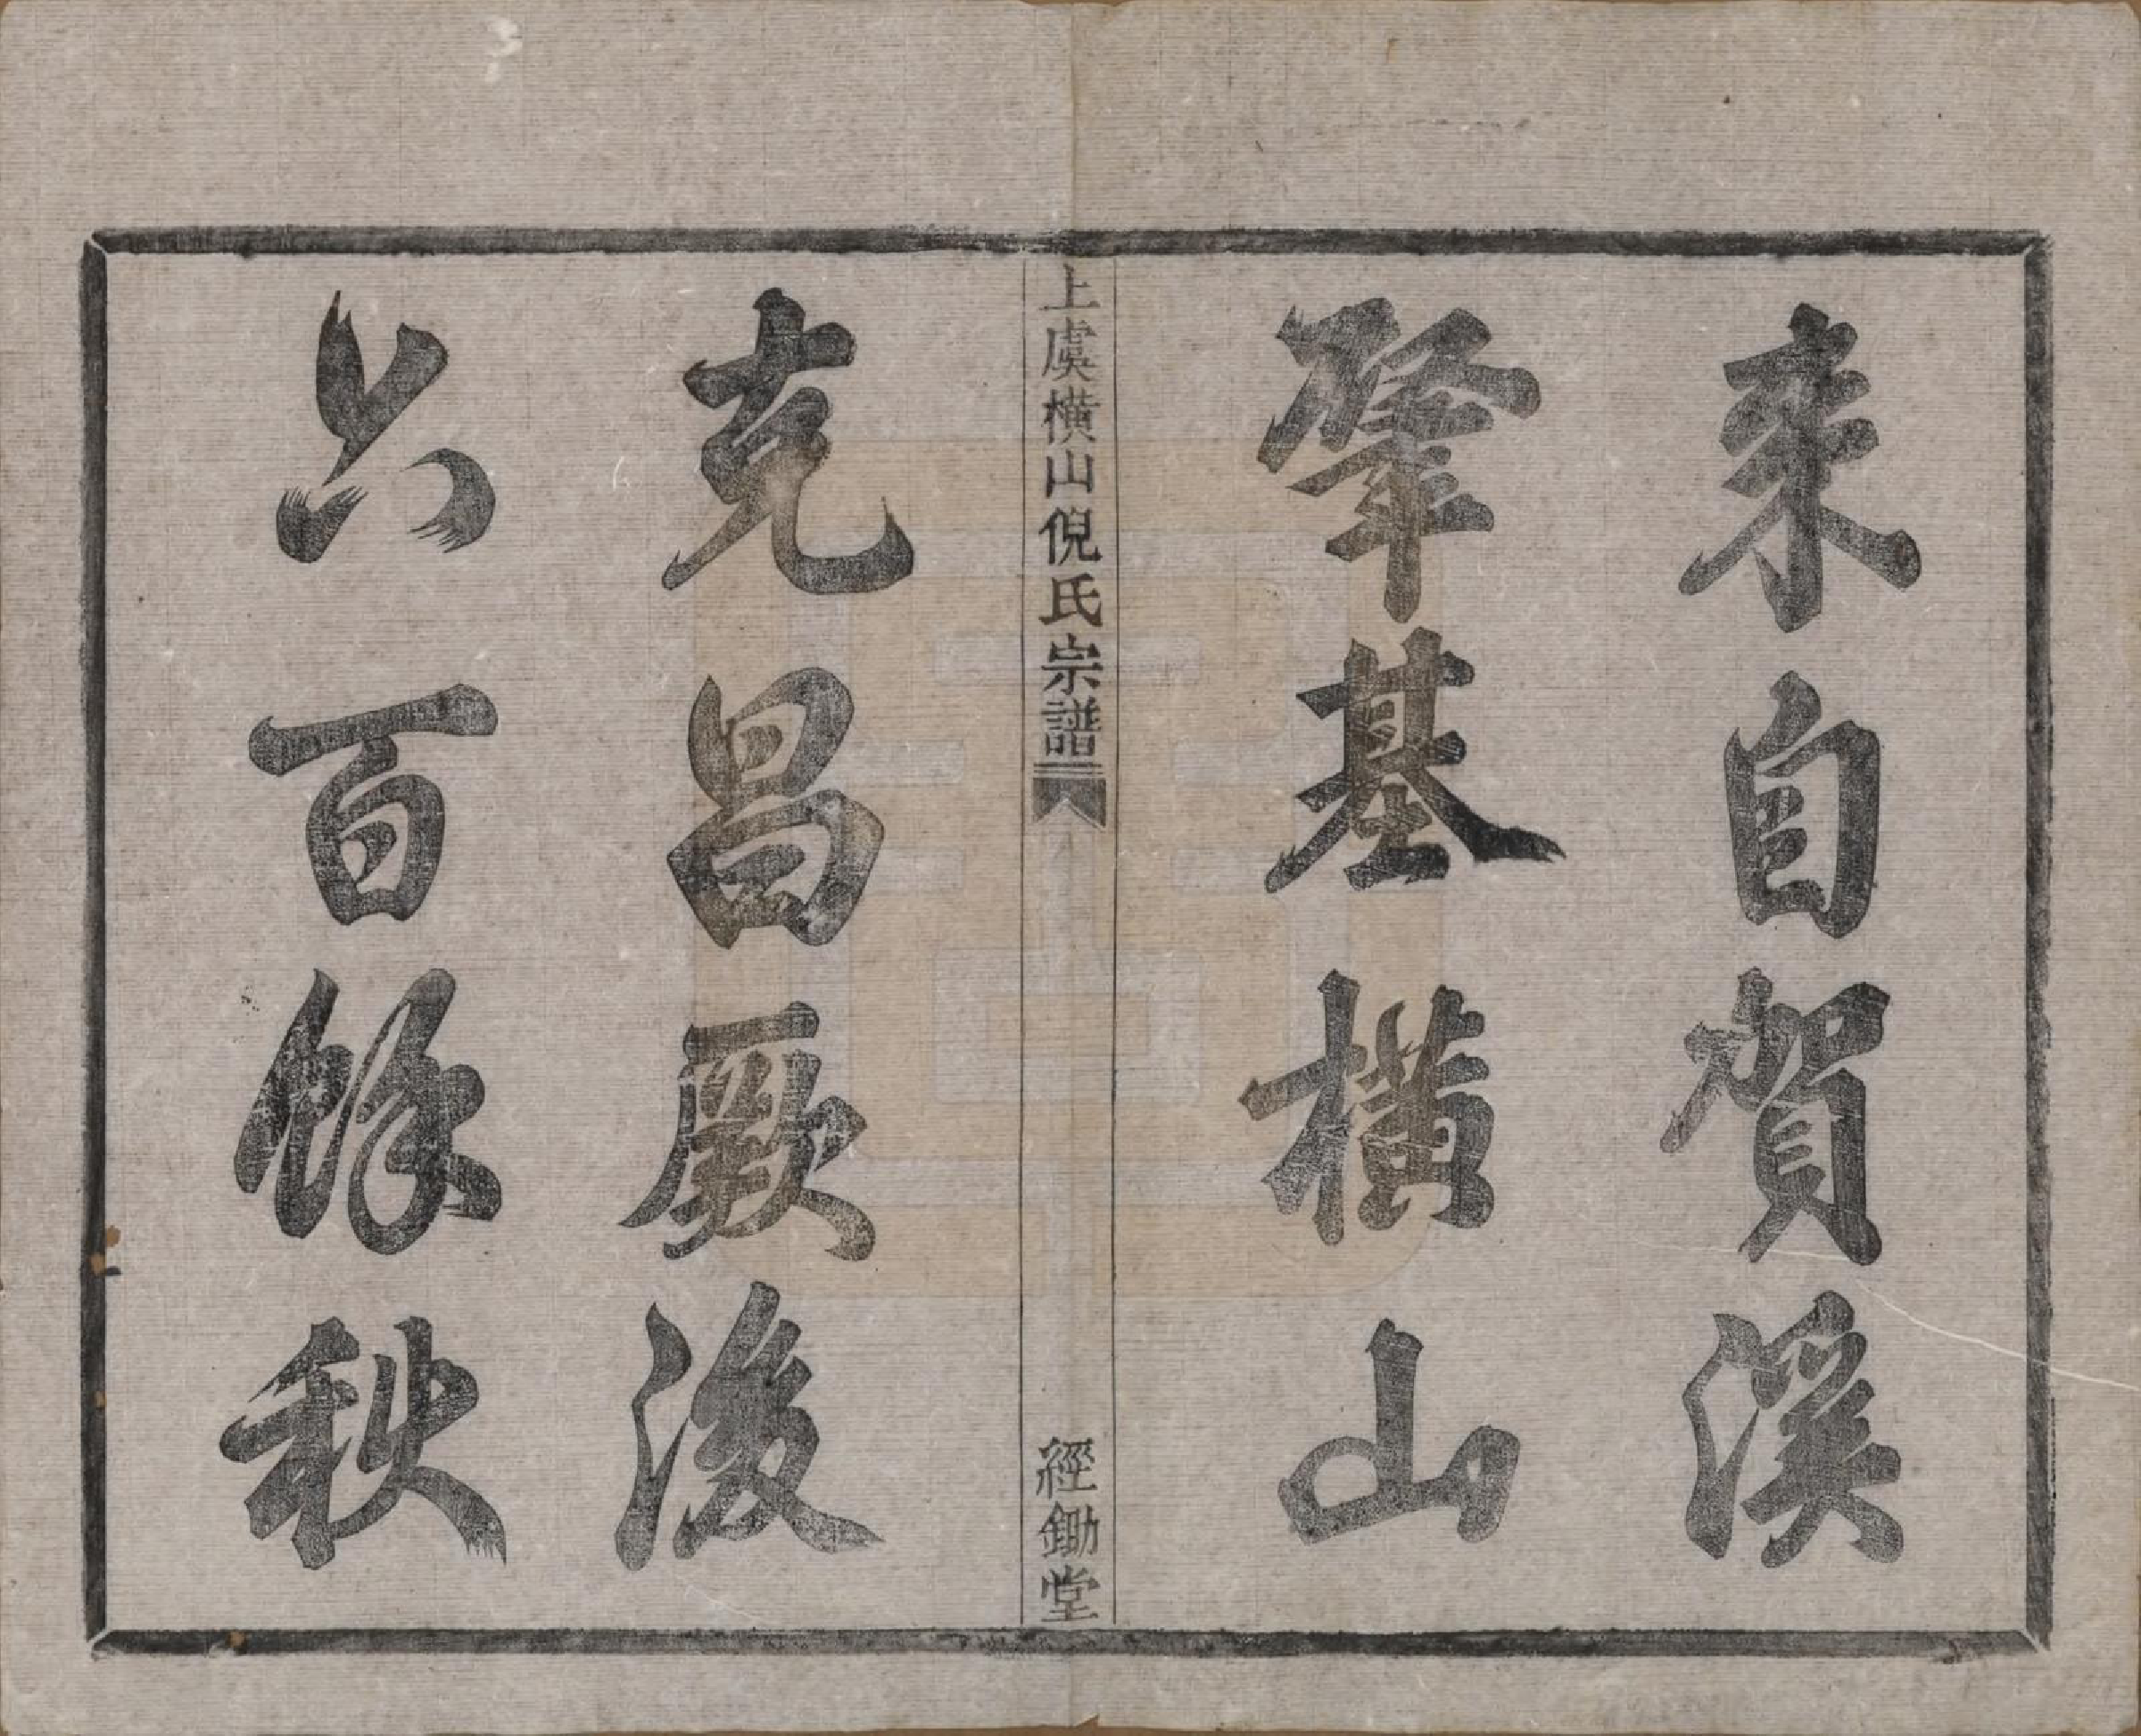 來自賀溪
肇基橫山
上虞橫山倪氏宗譜
經鋤堂
克昌厥後
六百餘秩